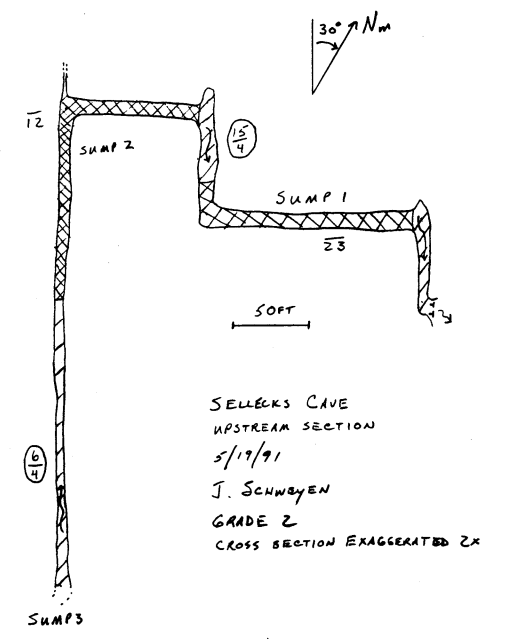 30° Nm
12
SUMP 2
15
4
SUMP 1
23
50FT
SELLECKS CAVE
UPSTREAM SECTION
5/19/91
J. SCHWEYEN
GRADE 2
CROSS SECTION EXAGGERATED 2X
6
4
SUMP3